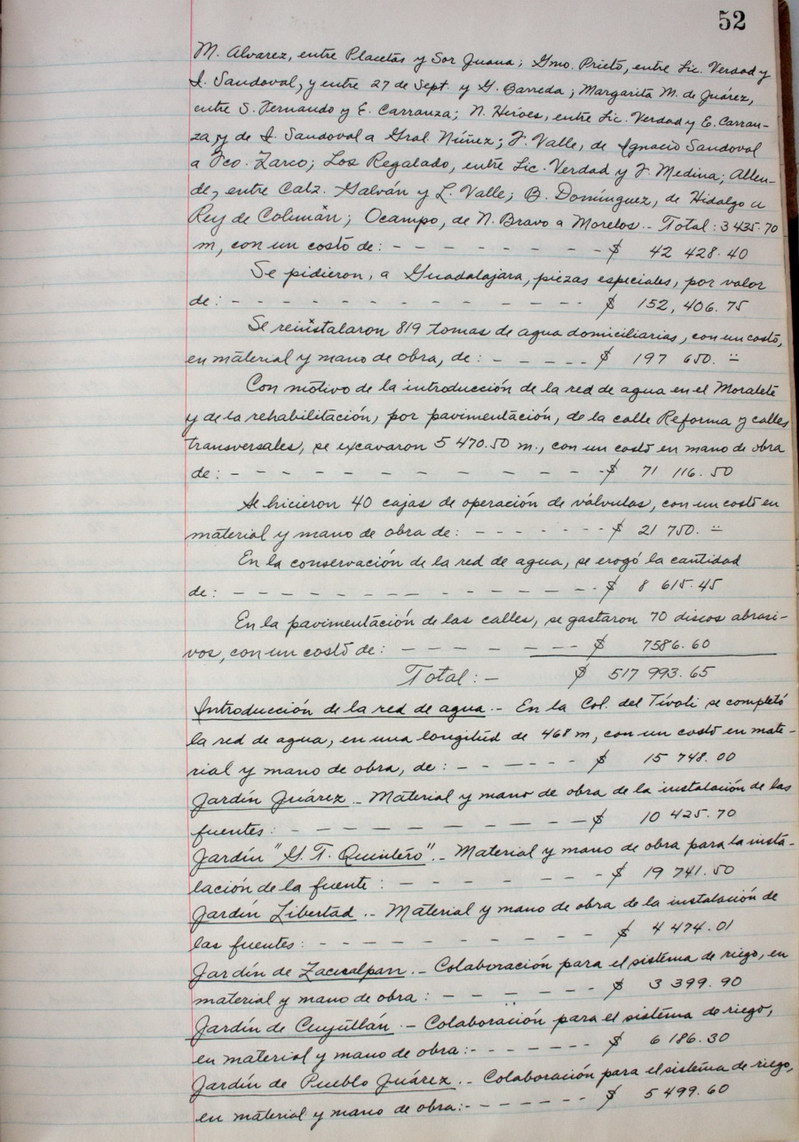 52
M. Alvarez, entre Placetas y Sor Juana; Gmo. Prieto, entre Lic. Verdad y
I. Sandoval, y entre 27 de Sept. y G. Barreda; Margarita M. de Juárez,
entre S. Fernando y E. Carranza; N. Héroes, entre Lic. Verdad y E. Carran-
za, y de I. Sandoval a Gral. Núñez; J. Valle, de Ignacio Sandoval
a Fco. Zarco; Los Regalado, entre Lic. Verdad y J. Medina; Allen-
de, entre Calz. Galván y L. Valle; B. Domínguez, de Hidalgo a
Rey de Colimán; Ocampo, de N. Bravo a Morelos.- Total: 3 435.70
m, con un costo de: - - - - - - - - $ 42 428.40
Se pidieron, a Guadalajara, piezas especiales, por valor
de: - - - - - - - - - - - - - $ 152,406.75
Se reinstalaron 819 tomas de agua domiciliarias, con un costo,
en material y mano de obra, de: - - - - - $ 197 650.=
Con motivo de la introducción de la red de agua en el Moralete
y de la rehabilitación, por pavimentación, de la calle Reforma y calles
transversales, se excavaron 5 470.50 m., con un costo en mano de obra
de: - - - - - - - - - - - - - $ 71 116.50
Se hicieron 40 cajas de operación de válvulas, con un costo en
material y mano de obra de: - - - - - - - $ 21 750.=
En la conservación de la red de agua, se erogó la cantidad
de: - - - - - - - - - - - - - $ 8 615.45
En la pavimentación de las calles, se gastaron 70 discos abrasi-
vos, con un costo de: - - - - - - - - $ 7586.60
Total:- $ 517 993.65
Introducción de la red de agua.- En la Col. del Tívoli se completó
la red de agua, en una longitud de 468 m, con un costo en mate-
rial y mano de obra, de: - - - - - - $ 15 748.00
Jardín Juárez.- Material y mano de obra de la instalación de las
fuentes: - - - - - - - - - - $ 10 425.70
Jardín "G. T. Quintero".- Material y mano de obra para la insta-
lación de la fuente: - - - - - - - - $ 19 741.50
Jardín Libertad.- Material y mano de obra de la instalación de
las fuentes: - - - - - - - - - $ 4 474.01
Jardín de Zacualpan.- Colaboración para el sistema de riego, en
material y mano de obra: - - - - - - $ 3 399.90
Jardín de Cuyutlán.- Colaboración para el sistema de riego,
en material y mano de obra:- - - - - - - $ 6 186.30
Jardín de Pueblo Juárez.- Colaboración para el sistema de riego,
en material y mano de obra:- - - - - - - $ 5 499.60